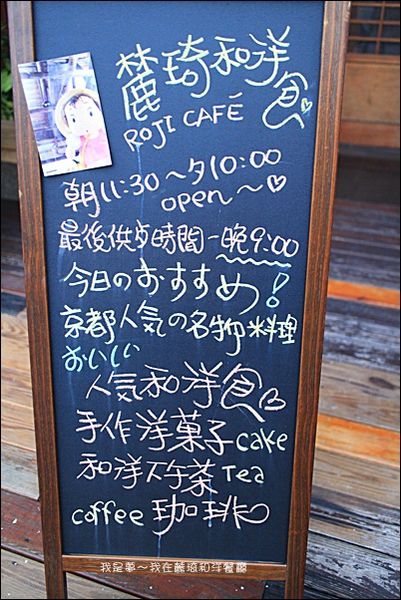 麓琦和洋食
ROJI CAFÉ
朝11:30～夕10:00
open～♡
最後供餐時間－晚9:00
今日のおすすめ!
京都人気の名物料理
おいしい
人気和洋食
手作洋菓子cake
和洋下午茶Tea
coffee珈琲
我是夢～我在麓琦和洋餐廳